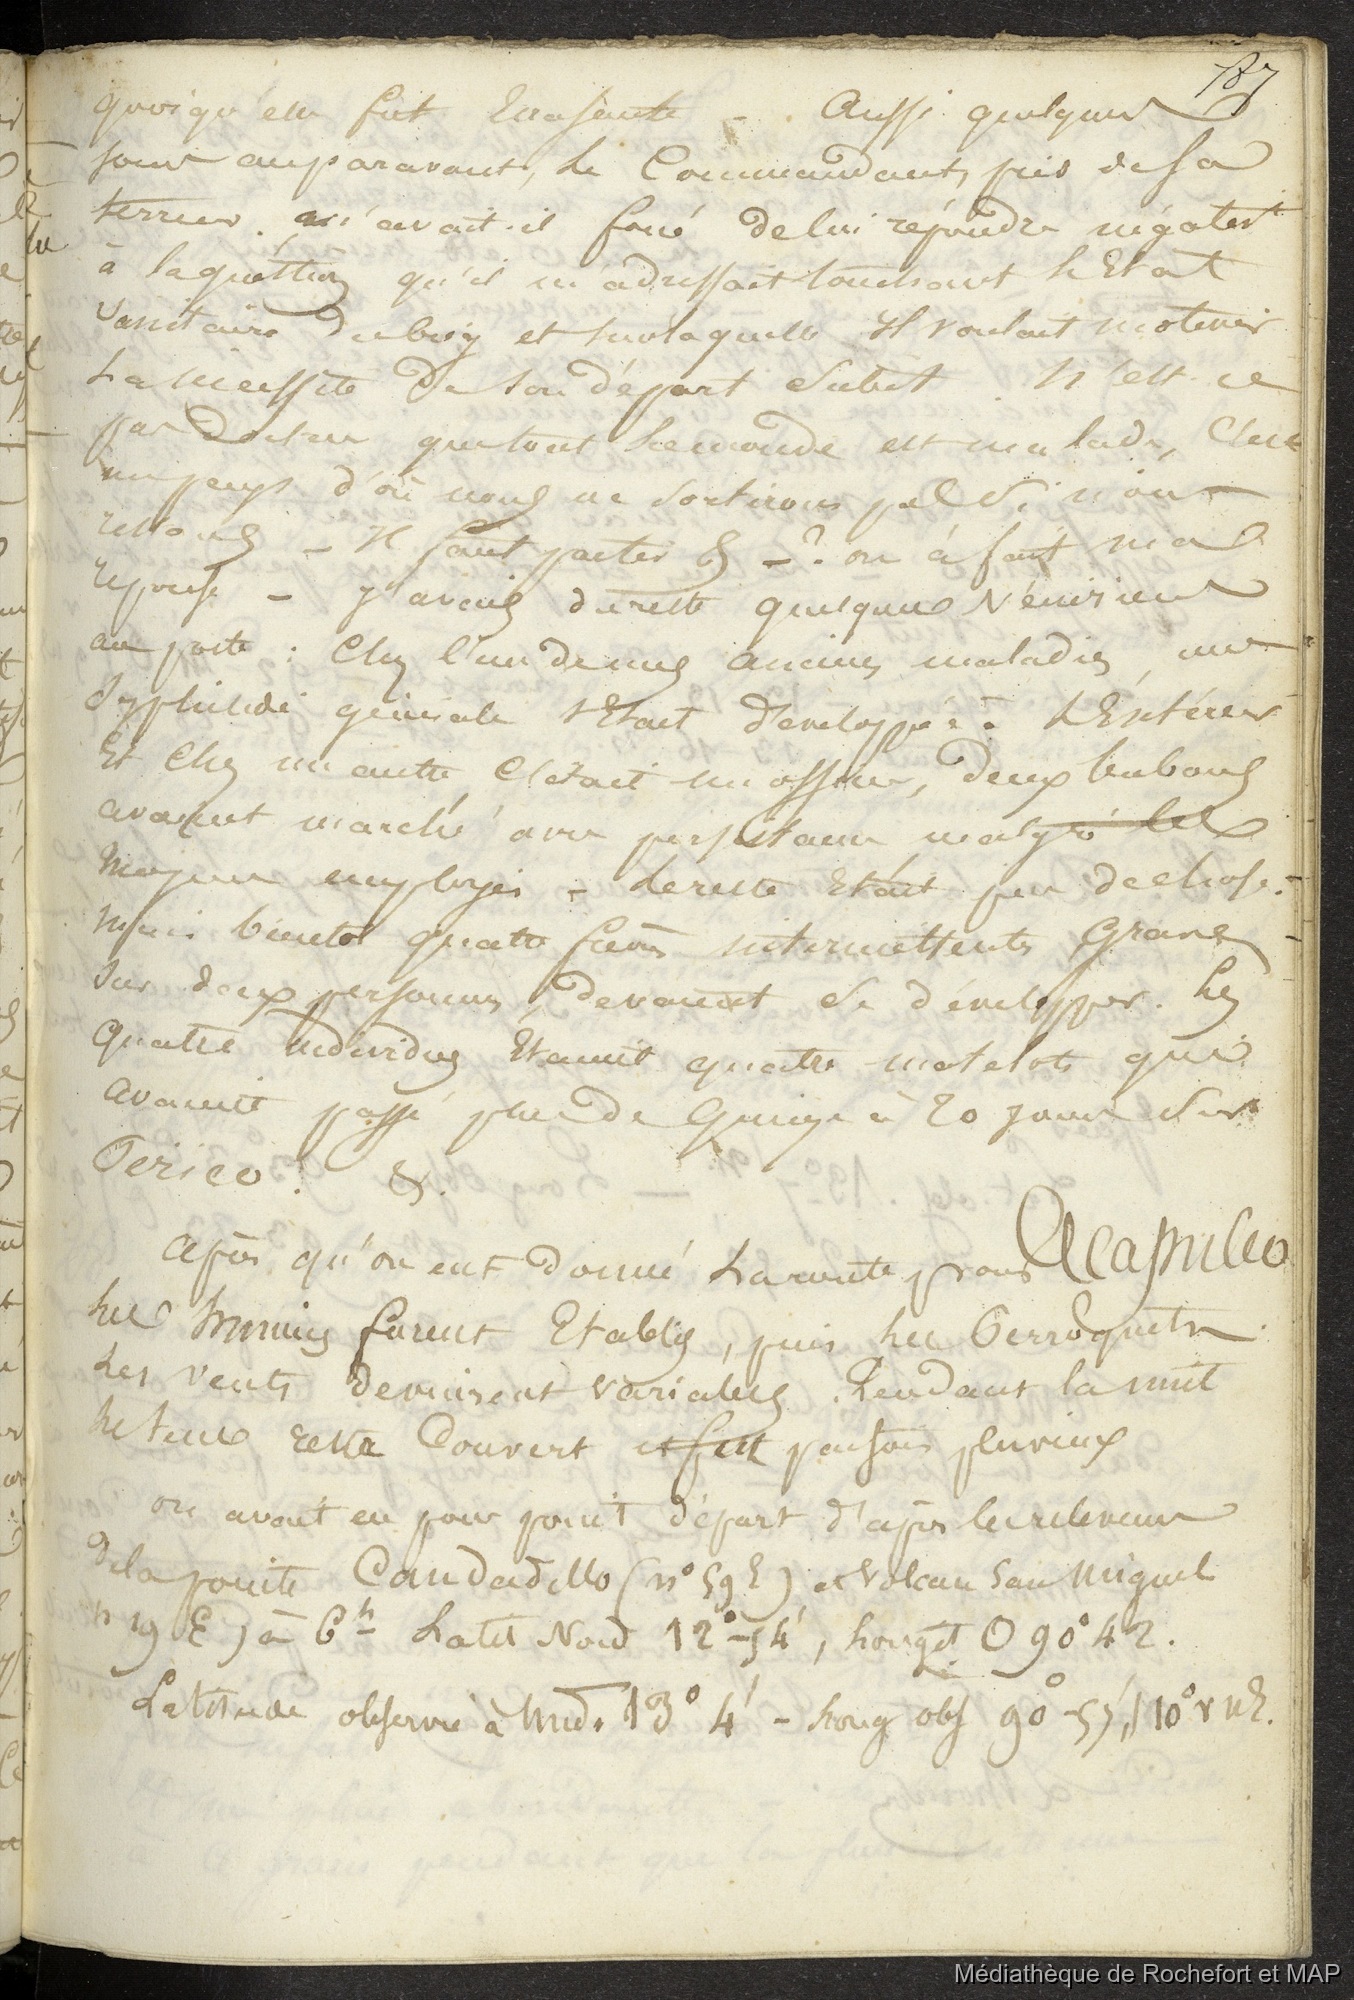 187
quoiqu'elle fut Enceinte - Aussi quelques
jours auparavant, Le Commandant, pris de sa
terreur. m'avait-il forcé de lui répondre négativt
à la question qu'il m'adressait touchant L'Etat
Sanitaire du brig et sur laquelle Il voulait motiver
La nécessité De son départ Subit N'est-ce
pas Docteur que tout Le monde est malade, C'est
un pays d'où nous ne Sortirons pas Si nous
restons - Il faut partir &
réponse - J'avais du reste quelques Vénériens
au poste : Chez l'un de mes anciens malades une
Syphilide générale s'Etait développée à L'Extérieur
Et Chez un autre, C'était un officier, deux bubons
avaient marché avec persistance malgré les
Moyens employés - Le reste Etait peu de chose.
Mais bientôt quatre fièvres intermittentes Graves
Sur deux personnes, devaient Se développer. Les
quatre individus Etaient quatre matelots qui
avaient passé plus de Quinze à 20 jours Sur
Perico. &.
Après qu'on eut donné La route pour Acapulco
Les Huniers furent Etablis, puis Les Perroquets
Les vents devinrent variables. Pendant la nuit
Le tems reste Couvert et fut parfois pluvieux
on avait eu pour point départ d'après les relèvemens
de la pointe Candadillo (n° 59 E) et Volcan San Miguel
n 19 E) à 6h Latit Nord 12°-54', Longit O 90° 42.
Latitude observée à Midi 13° 4' - Long obs 90°-55', 110° V NE.
Médiathèque de Rochefort et MAP